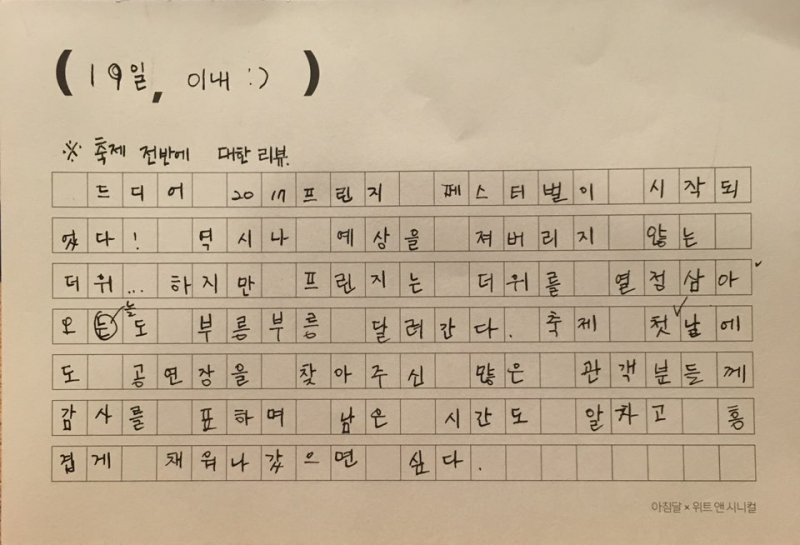 (19일, 이내 :))
※ 축제 전반에 대한 리뷰.
드디어 2017프린지 페스터벌이 시작되
었다! 역시나 예상을 져버리지 않는
더위... 하지만 프린지는 더위를 열정삼아
오늘도 부릉부릉 달려간다. 축제 첫날에
도 공연장을 찾아주신 많은 관객분들께
감사를 표하며 남은 시간도 알차고 흥
겹게 채워나갔으면 싶다.
아침달 × 위트 앤 시니컬